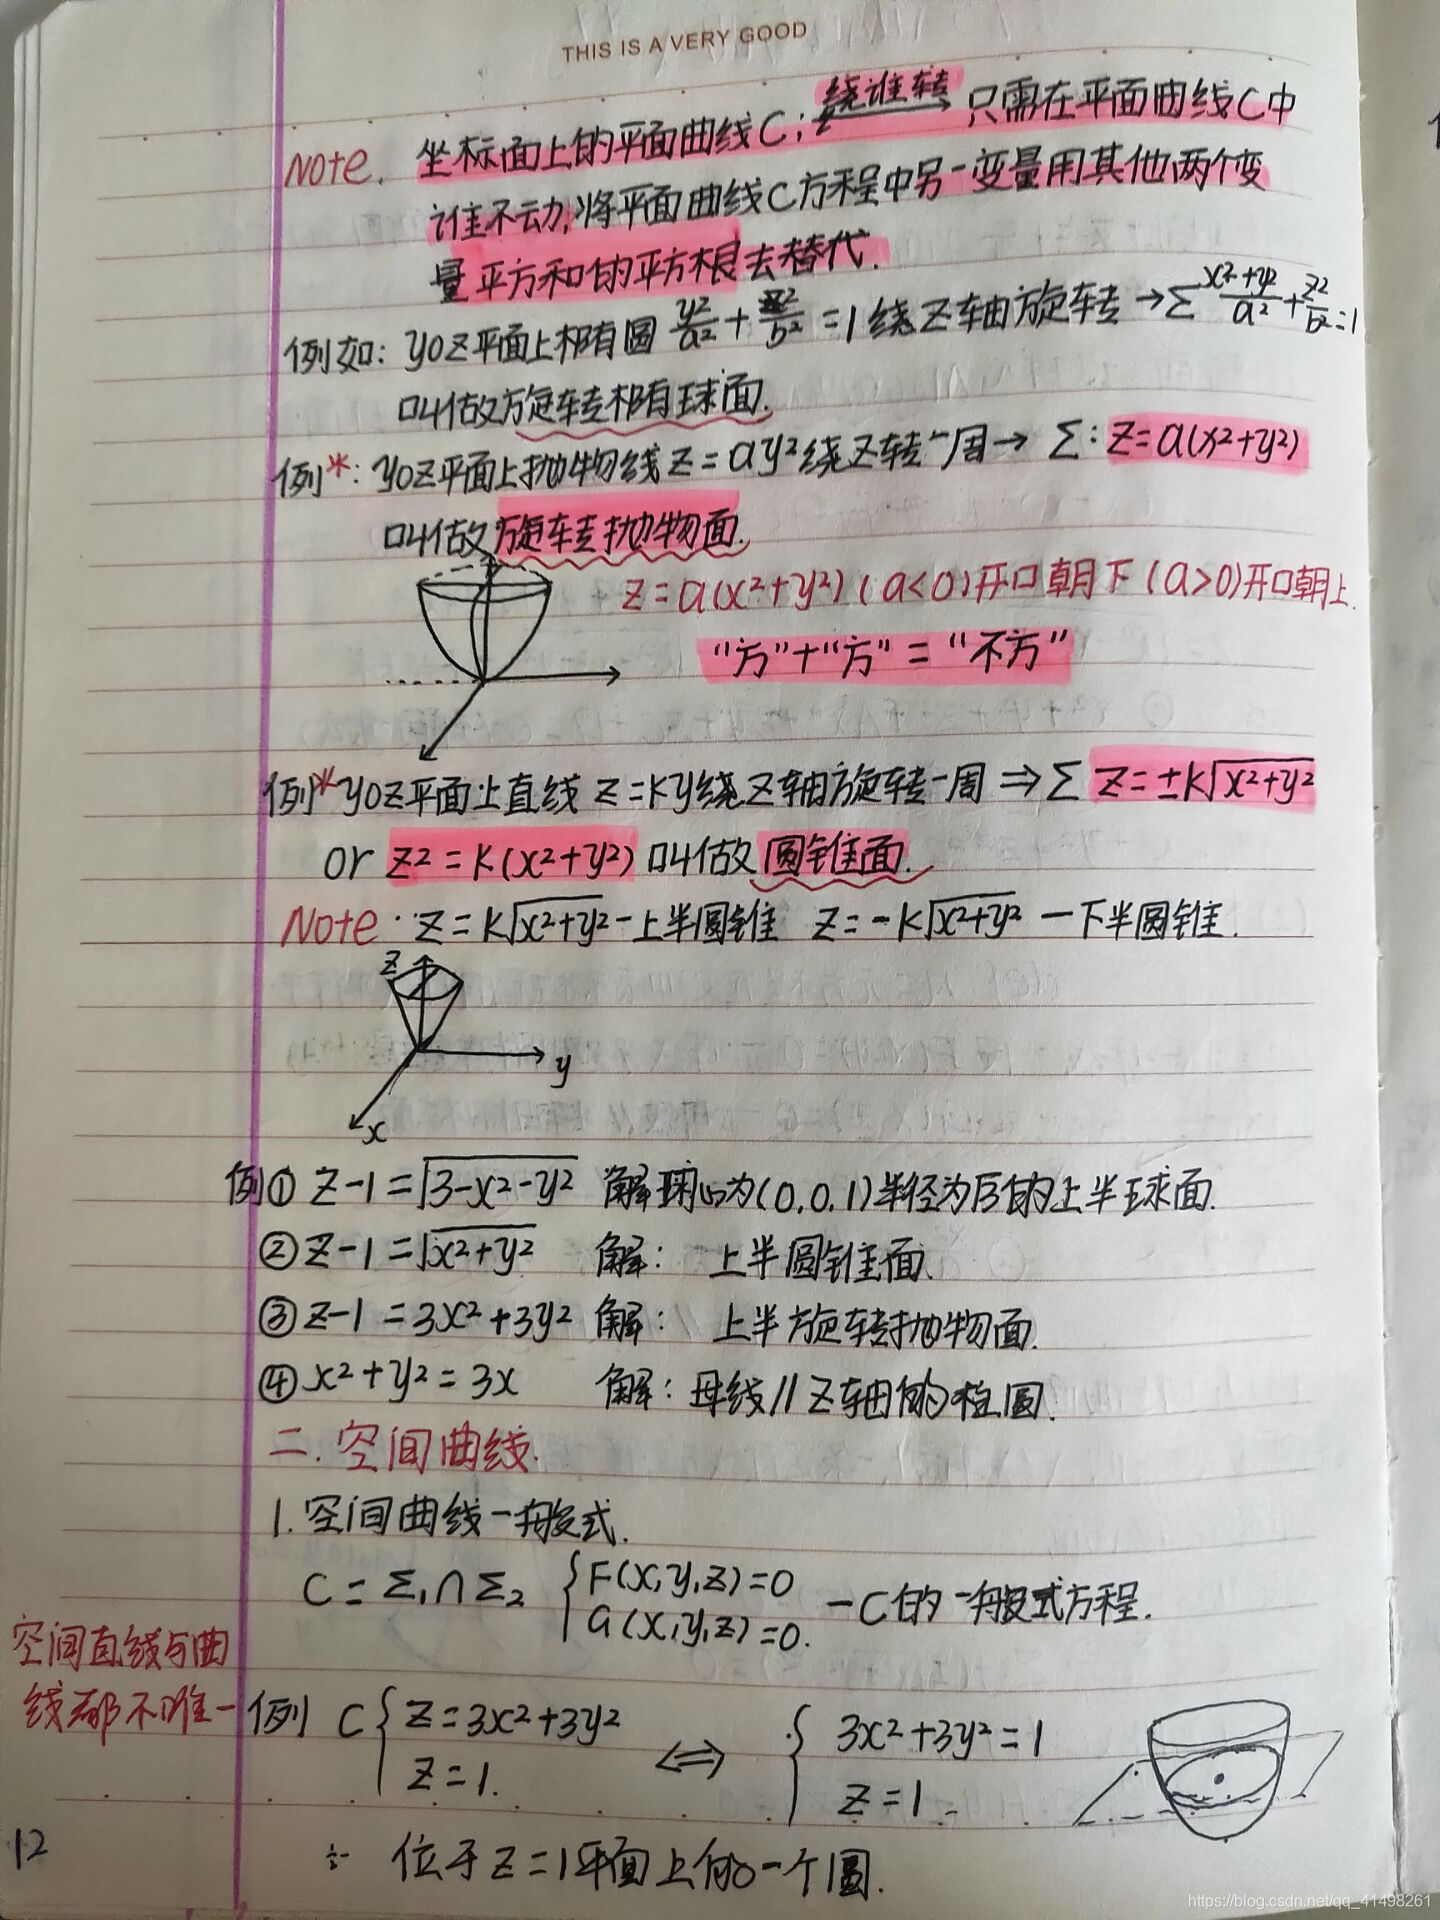 THIS IS A VERY GOOD
Note. 坐标面上的平面曲线C; 绕谁转→ 只需在平面曲线C中
谁不动,将平面曲线C方程中另一变量用其他两个变
量平方和的平方根去替代.
例如: yoz平面上椭圆 y²/a² + z²/b² = 1 绕Z轴旋转→Σ (x²+y²)/a² + z²/b² = 1
叫做旋转椭球面.
例*: yoz平面上抛物线 z=ay² 绕Z转一周→ Σ: z=a(x²+y²)
叫做旋转抛物面.
z=a(x²+y²) (a<0)开口朝下 (a>0)开口朝上.
“方”+“方”=“不方”
例* yoz平面上直线 z=ky绕Z轴旋转一周 ⇒Σ z=±k√(x²+y²)
or z²=k(x²+y²) 叫做圆锥面.
Note· z=k√(x²+y²) - 上半圆锥 z=-k√(x²+y²) — 下半圆锥.
z
y
x
例① z-1=√(3-x²-y²) 解球心为(0,0,1)半径为√3的上半球面.
② z-1=√(x²+y²) 解: 上半圆锥面.
③ z-1=3x²+3y² 解: 上半旋转抛物面.
④ x²+y²=3x 解: 母线//Z轴的柱圆.
二. 空间曲线.
1. 空间曲线一般式.
C=Σ₁∩Σ₂ { F(x,y,z)=0
G(x,y,z)=0. — C的一般式方程.
空间直线与曲
线都不唯一
例 C { z=3x²+3y²
z=1. ⇔ { 3x²+3y²=1
z=1.
位于z=1平面上的一个圆.
12
https://blog.csdn.net/qq_41498261